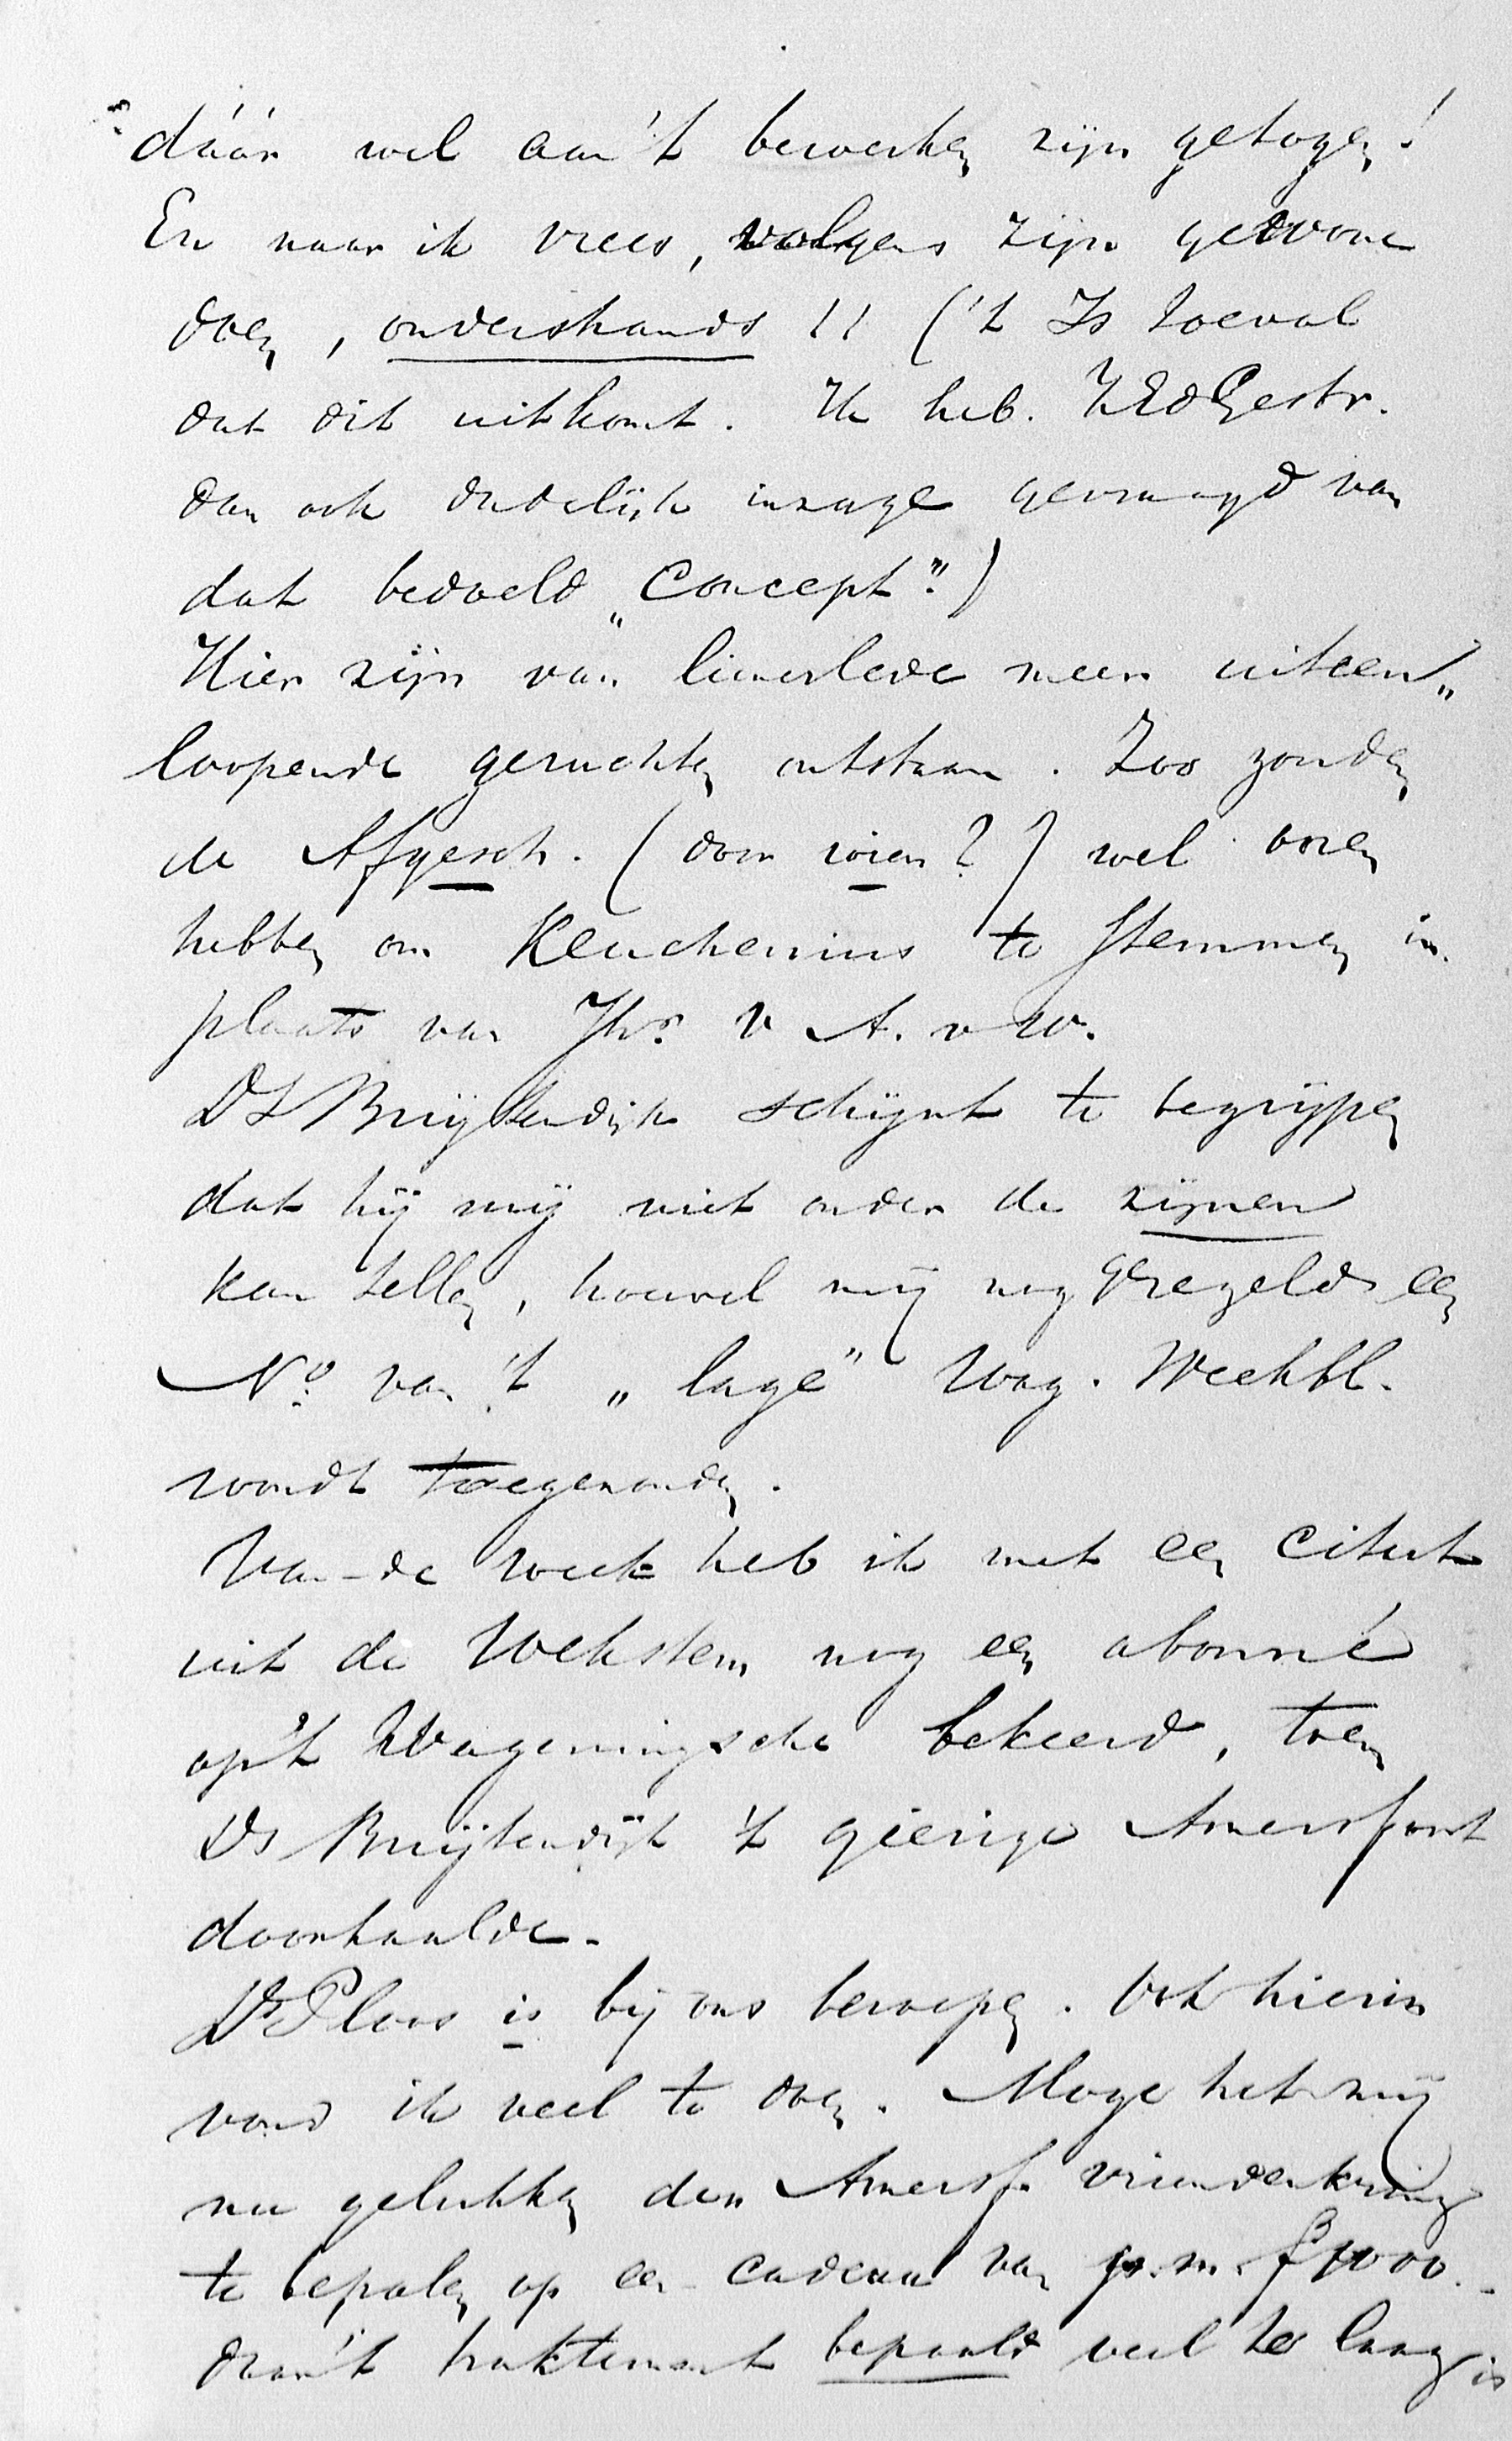 dáár wel aan 't bewerken zijn getogen!
En naar ik vrees, volgens zijn gewone
doen, ondershands !! ('t Is toeval
dat dit uitkomt. Ik heb. ZEdGestr.
dan ook dadelijk inzage gevraagd van
dat bedoeld „Concept".)
Hier zijn van lieverlede meer uiteen„
loopende geruchten ontstaan. Zoo zouden
de Afgesch. (door wien?) wel ooren
hebben om Keuchenius te stemmen in
plaats van Jhr. v A. v W.
Ds Bruijtendijk schijnt te begrijpen
dat hij mij niet onder de zijnen
kan tellen, hoewel mij nog geregeld een
No. van 't „lage" Wag. Weekbl.
wordt toegezonden.
Van-de week heb ik met een citaat
uit de Wekstem nog een abonné
op 't Wageningsche bekeerd, toen
Ds Bruijtendijk 't gierige Amersfoort
doorhaalde.
Ds Ploos is bij ons beroepen. Ook hierin
vond ik veel te doen. Moge het mij
nu gelukken den Amersf. vriendenkring
te bepalen op een cadeau van p.m. f 1000.-
daar 't traktement bepaald veel te laag is